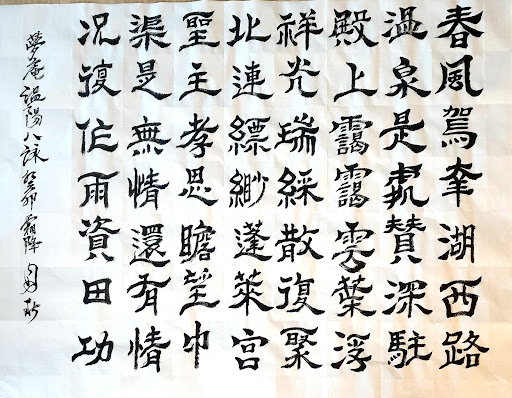 春風駕幸湖西路
温泉是賛深駐
殿上靄靄雲葉浮
祥光瑞綵散復聚
北連縹緲蓬萊宮
聖主孝思瞻望中
渠是無情還有情
況復作雨資田功
夢庵 温陽八詠 癸卯 霜降